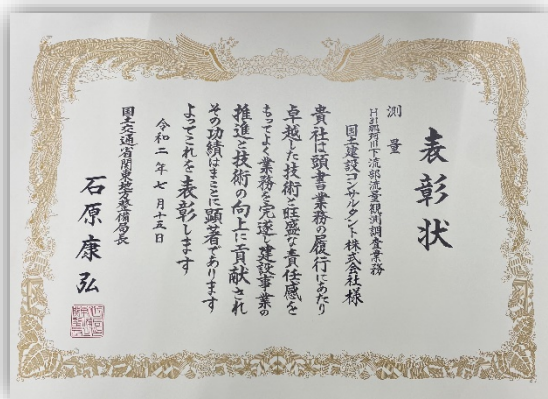 表彰状
測量
H31那珂川下流部流量観測調査業務
国土建設コンサルタント株式会社様
貴社は頭書業務の履行にあたり
卓越した技術と旺盛な責任感を
もってよく業務を完遂し建設事業の
推進と技術の向上に貢献され
その功績はまことに顕著であります
よってこれを表彰します
令和二年七月十五日
国土交通省関東地方整備局長
石原康弘